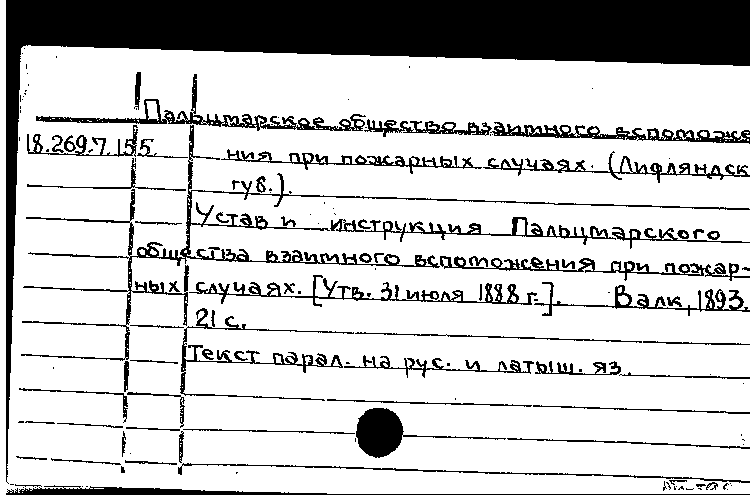 Пальцмарское общество взаимного вспоможе
18.269.7.155
ния при пожарных случаях. (Лифляндск
губ.).
Устав и инструкция Пальцмарского
общества взаимного вспоможения при пожар-
ных случаях. [Утв. 31 июля 1888 г.]. Валк, 1893.
21 с.
Текст парал. на рус. и латыш. яз.